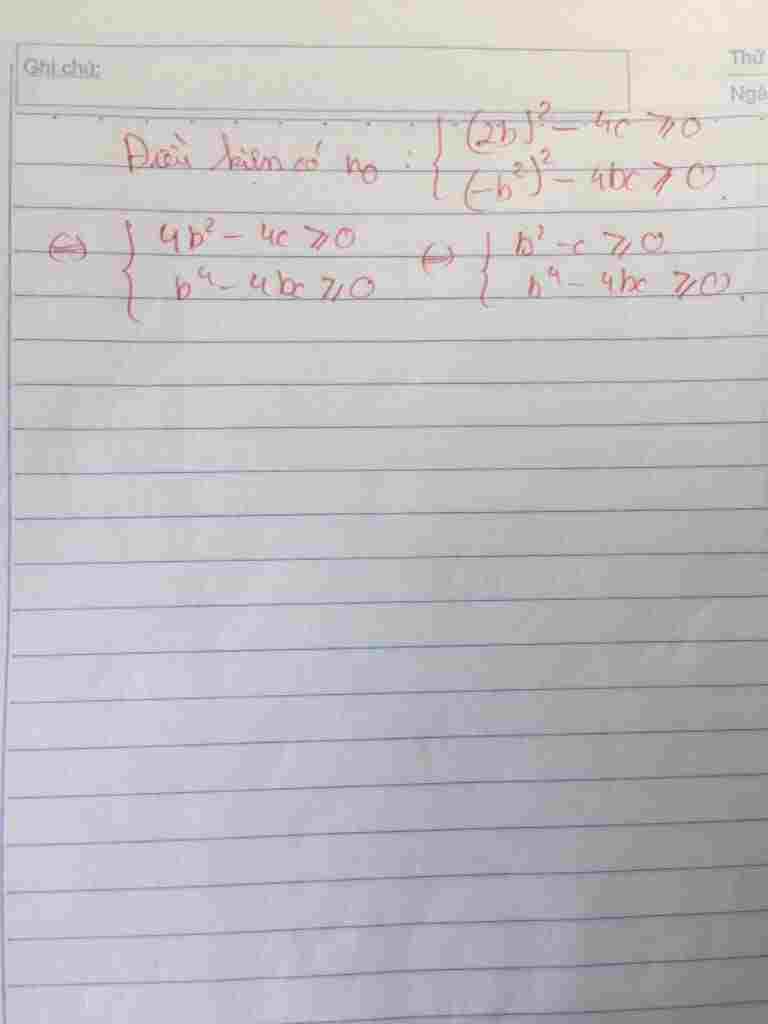 Ghi chú:
Thứ
Ngà
Điều kiện có no : { (2b)² - 4c ⩾ 0
(-b²)² - 4bc ⩾ 0.
⇔ { 4b² - 4c ⩾ 0 ⇔ { b² - c ⩾ 0
b⁴ - 4bc ⩾ 0 b⁴ - 4bc ⩾ 0.